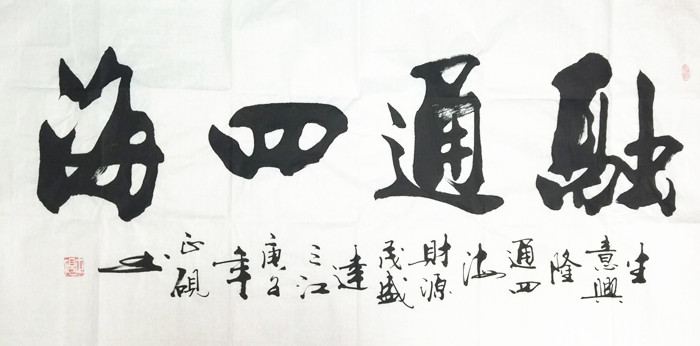 融通四海
生
意興
隆
通四
海
財源
茂盛
達
三江
庚子
年
正硯
书